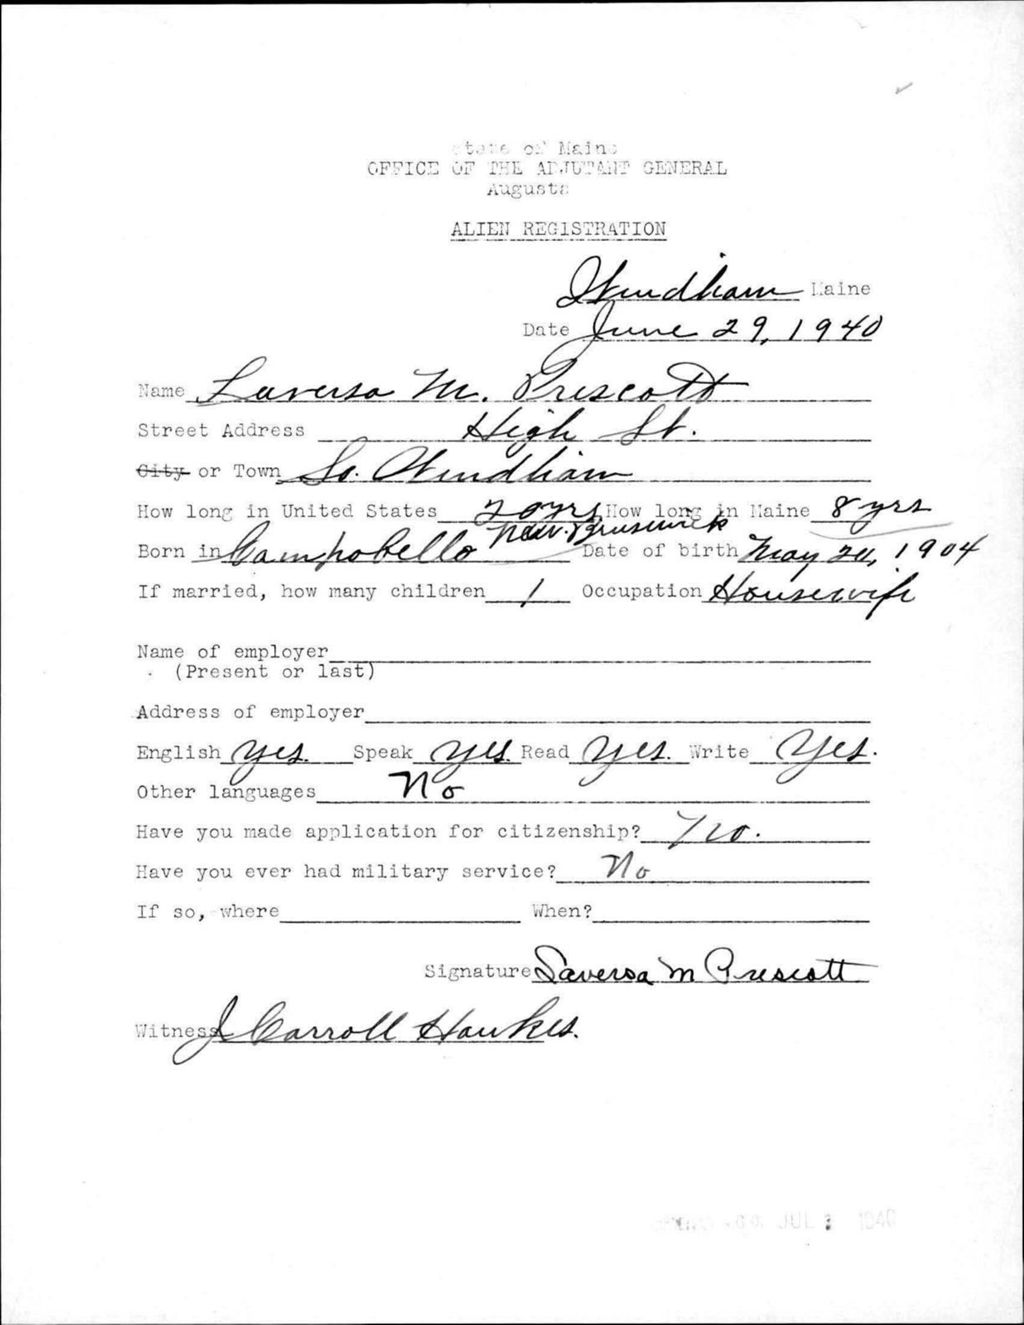 State of Maine
OFFICE OF THE ADJUTANT GENERAL
Augusta
ALIEN REGISTRATION
Windham Maine
Date June 29, 1940
Name Laversa M. Prescott
Street Address High St.
City or Town So. Windham
How long in United States 20 yrs How long in Maine 8 yrs
Born in Campobello New. Brunswick Date of birth May 24, 1904
If married, how many children 1 Occupation Housewife
Name of employer
(Present or last)
Address of employer
English Yes. Speak Yes. Read Yes. Write Yes.
Other languages No
Have you made application for citizenship? No.
Have you ever had military service? No
If so, where When?
Signature Laversa M Prescott
Witness J Carroll Hawkes.
JUL 1940